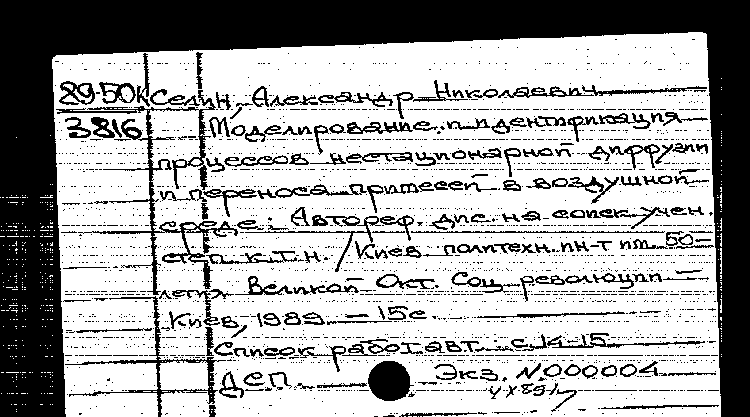 89-50к Селин, Александр Николаевич
3816 Моделирование и идентификация
процессов нестационарной диффузии
и переноса примесей в воздушной
среде: Автореф. дис. на соиск учен.
степ к.т.н. / Киев. политехн. ин-т им 50-
летия Великой Окт. Соц революции -
Киев, 1989 - 15с
Список работ авт.: с 14-15
ДСП Экз. N.000004